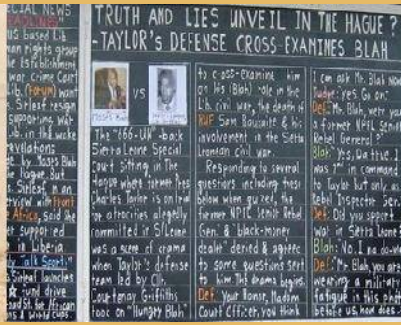 CIAL NEWS
HEADLINES"
US based Lib
man rights group
le Establishment
war crime Court
Lib. (Forum) want
. Sirleaf resign
supporting war
Lib. in the wake
revelations
de by Moses Blah
he Hague. But
s. Sirleaf in an
erview with Front
e Africa, said she
er supported
in Liberia.
TRUTH AND LIES UNVEIL IN THE HAGUE?
-TAYLOR'S DEFENSE CROSS-EXAMINES BLAH
VS
Moses Blah
The "666-UN"-back
Sierra Leone Special
Court sitting in The
Hague where former Pres
Charles Taylor is on trial
for atrocities allegedly
committed in S/Leone
was a scene of drama
when Taylor's defense
team led by Cllr.
Courtenay Griffiths
took on "Hungry Blah"
to cross-examine him
on his (Blah) role in the
Lib. civil war, the death of
RUF Sam Bockarie & his
involvement in the Sierra
Leonean civil war.
Responding to several
questions including those
below when quized, the
former NPFL Senior Rebel
Gen. & black-money
dealer" denied & agreed
to some questions sent
to him. The drama begins.
Def: Your Honor, Madam
Court Officer, you think
I can ask Mr. Blah now
Judge: Yes. Go on.
Def: Mr. Blah, were you
a former NPFL Senior
Rebel General?
Blah: Yes,
was in command
to Taylor but only as
Rebel Inspector Gen.
Def: Did you support
war in Sierra Leone?
Blah: No, I no do-
Def: "Mr. Blah you are
wearing a military
fatigue in this photo
before us, how does